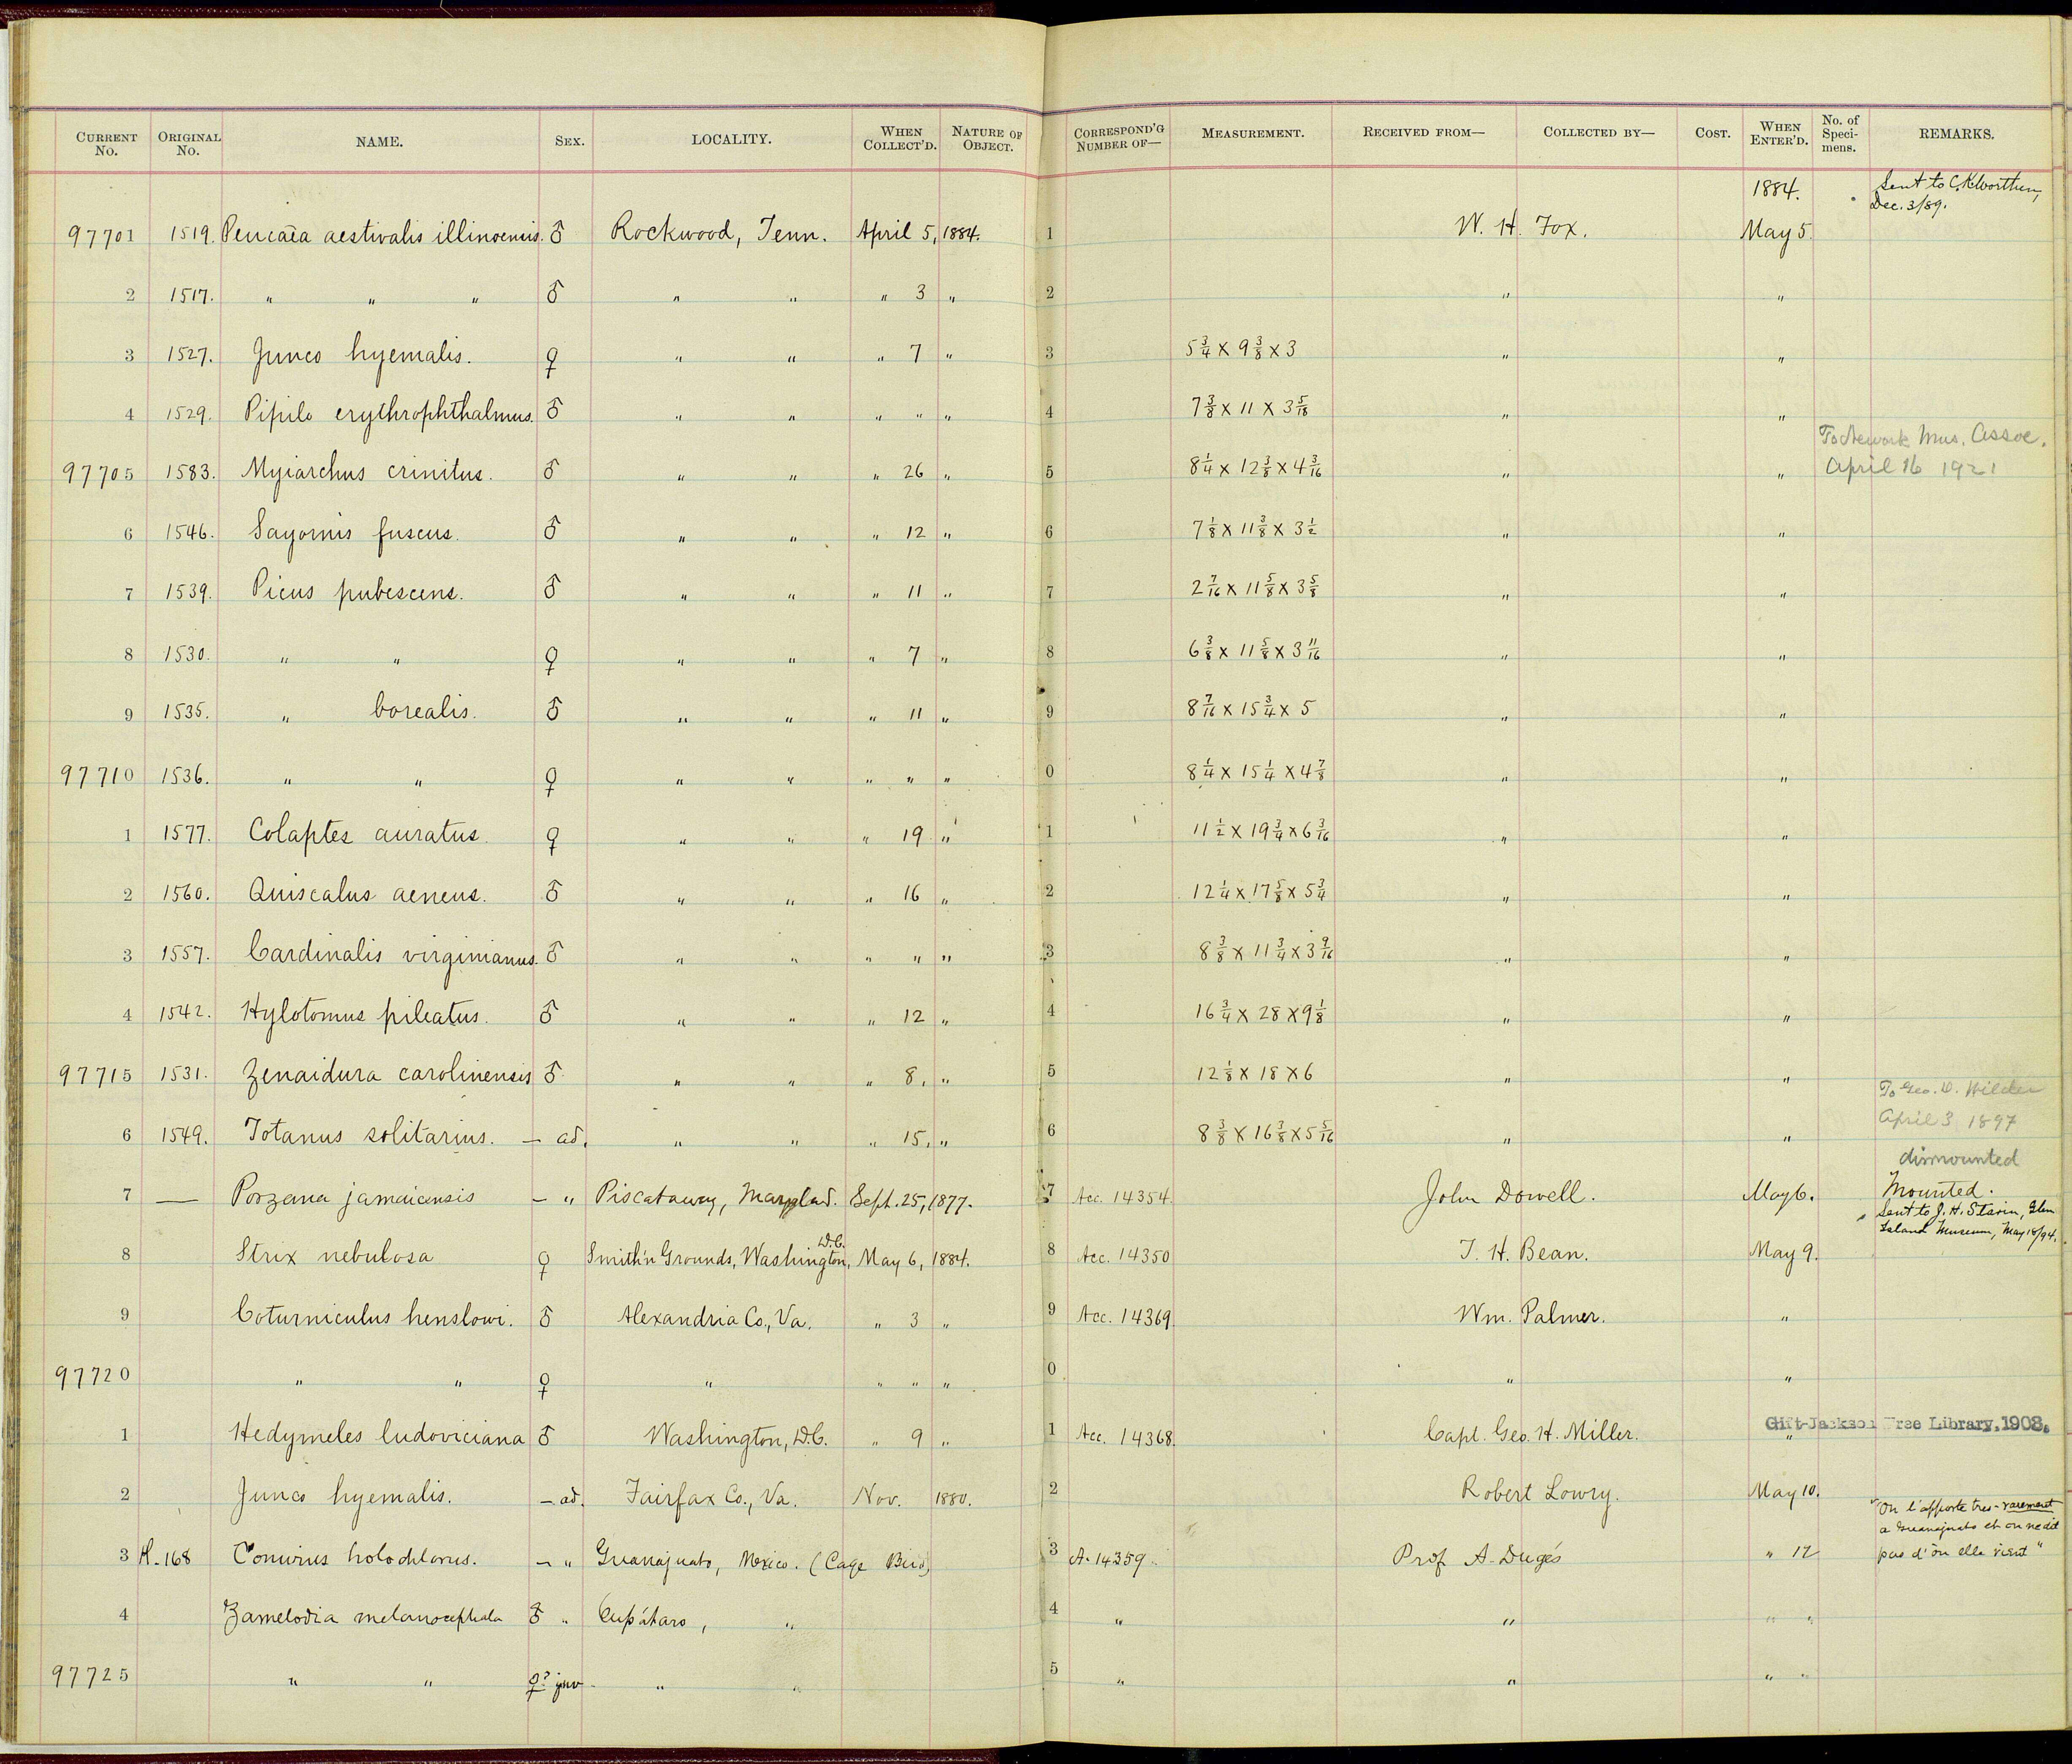 CURRENT No. ORIGINAL No. NAME. SEX. LOCALITY. WHEN COLLECT'D. NATURE OF OBJECT. CORRESPOND'G NUMBER OF— MEASUREMENT. RECEIVED FROM— COLLECTED BY— COST. WHEN ENTER'D. No. of Speci-mens. REMARKS.
1884. Sent to C.K. Worthen,
Dec. 3/89.
97701 1519. Peucaea aestivalis illinoensis. ♂ Rockwood, Tenn. April 5, 1884. 1 W. H. Fox. May 5.
2 1517. " " " ♂ " " " 3 " 2 " "
3 1527. Junco hyemalis. ♀ " " " 7 " 3 5 3/4 x 9 3/8 x 3 " "
4 1529. Pipilo erythrophthalmus. ♂ " " " " " 4 7 3/8 x 11 x 3 5/18 " "
To Newark Mus. Assoc.
97705 1583. Myiarchus crinitus. ♂ " " " 26 " 5 8 1/4 x 12 3/8 x 4 3/16 " " April 16 1921
6 1546. Sayornis fuscus. ♂ " " " 12 " 6 7 1/8 x 11 3/8 x 3 1/2 " "
7 1539. Picus pubescens. ♂ " " " 11 " 7 2 7/16 x 11 5/8 x 3 5/8 " "
8 1530. " " ♀ " " " 7 " 8 6 3/8 x 11 5/8 x 3 11/16 " "
9 1535. " borealis. ♂ " " " 11 " 9 8 7/16 x 15 3/4 x 5 " "
97710 1536. " " ♀ " " " " " 0 8 1/4 x 15 1/4 x 4 7/8 " "
1 1577. Colaptes auratus. ♀ " " " 19 " 1 11 1/2 x 19 3/4 x 6 3/16 " "
2 1560. Quiscalus aeneus. ♂ " " " 16 " 2 12 1/4 x 17 5/8 x 5 3/4 " "
3 1557. Cardinalis virginianus. ♂ " " " " " 3 8 3/8 x 11 3/4 x 3 9/16 " "
4 1542. Hylotomus pileatus. ♂ " " " 12 " 4 16 3/4 x 28 x 9 1/8 " "
97715 1531. Zenaidura carolinensis ♂ " " " 8, " 5 12 1/8 x 18 x 6 " "
To Geo. D. Wilder
April 3 1897
6 1549. Totanus solitarius. — ad. " " " 15, " 6 8 3/8 x 16 3/8 x 5 5/16 " "
dismounted
7 — Porzana jamaicensis — " Piscataway, Maryland. Sept. 25, 1877. 7 Acc. 14354. John Dowell. May 6. Mounted.
Sent to J. H. Starin, Glen
Island Museum, May 18/94.
8 Strix nebulosa ♀ Smith'n Grounds, Washington, D.C. May 6, 1884. 8 Acc. 14350 T. H. Bean. May 9.
9 Coturniculus henslowi. ♂ Alexandria Co., Va. " 3 " 9 Acc. 14369 Wm. Palmer. "
97720 " " ♀ " " " " 0 " "
1 Hedymeles ludoviciana ♂ Washington, D.C. " 9 " 1 Acc. 14368. Capt. Geo. H. Miller. " Gift-Jackson Free Library, 1903.
2 Junco hyemalis. — ad. Fairfax Co., Va. Nov. 1880. 2 Robert Lowry. May 10.
"On l'apporte tres-rarement
a Guanajuato et on ne dit
3 H. 168 Conurus holochlorus. — " Guanajuato, Mexico. (Cage Bird) 3 A. 14359. Prof A. Dugés " 12 pas d'òu elle vient"
4 Zamelodia melanocephala ♂ " Cupátaro, " 4 " " " "
97725 " " ♀? juv " " 5 " " " "